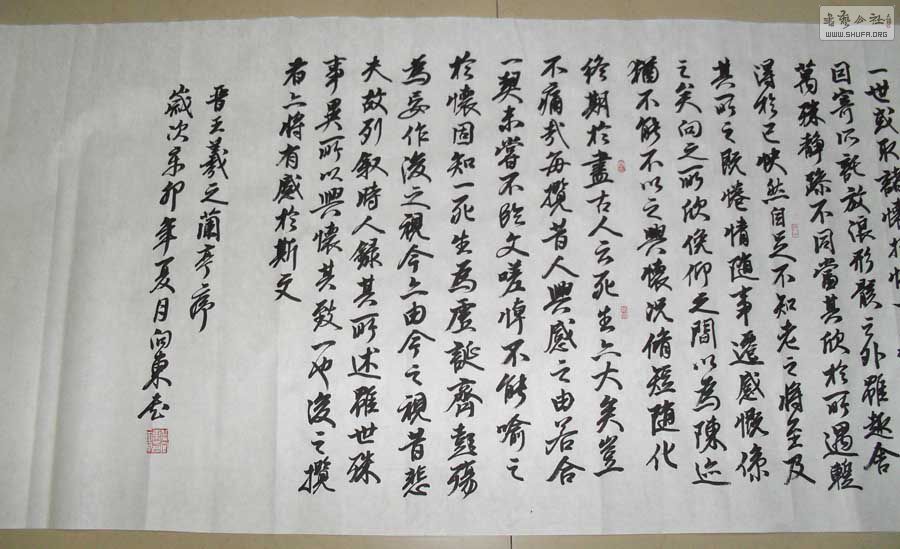 書藝公社
WWW.SHUFA.ORG
一世或取諸懷抱悟
因寄所託放浪形骸之外雖趣舍
萬殊靜躁不同當其欣於所遇暫
得於己快然自足不知老之將至及
其所之既惓情隨事遷感慨係
之矣向之所欣俛仰之間以為陳迹
猶不能不以之興懷況脩短隨化
終期於盡古人云死生亦大矣豈
不痛哉每攬昔人興感之由若合
一契未嘗不臨文嗟悼不能喻之
於懷固知一死生為虛誕齊彭殤
為妄作後之視今亦由今之視昔悲
夫故列叙時人錄其所述雖世殊
事異所以興懷其致一也後之攬
者亦將有感於斯文
晉王羲之蘭亭序
歲次辛卯年夏月向東書